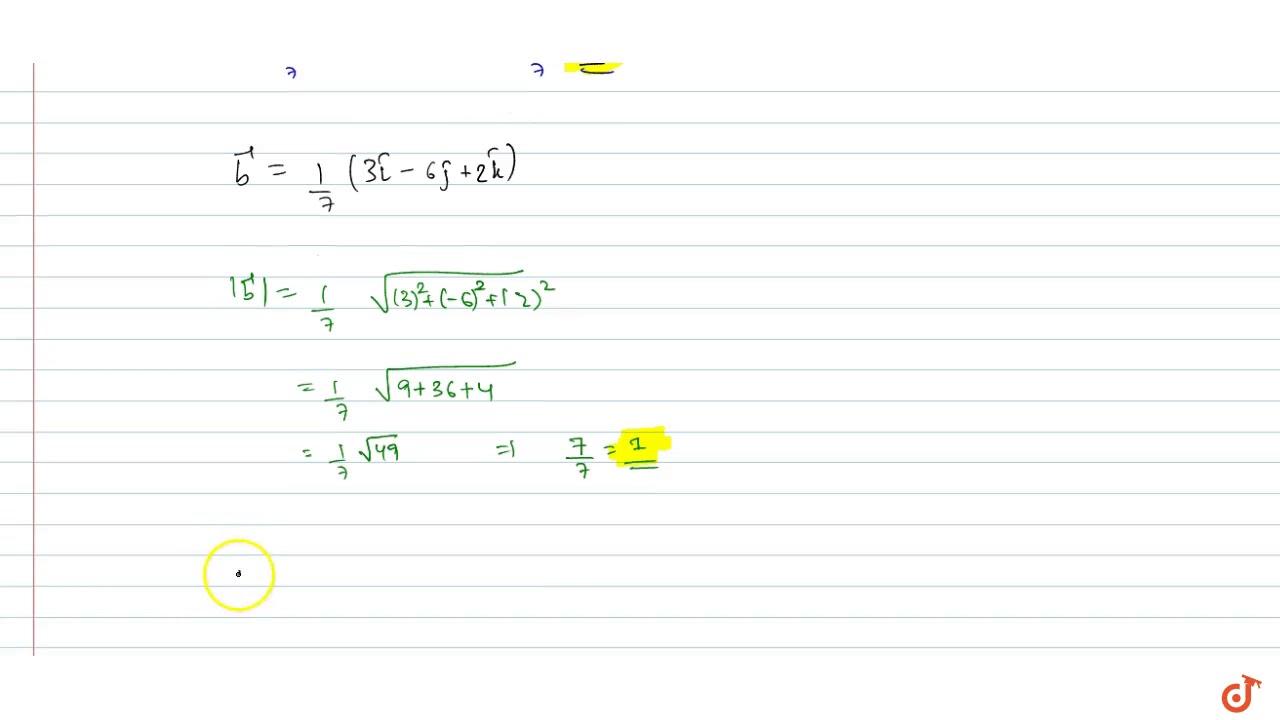 7 7
b⃗ = 1/7 (3î - 6ĵ + 2k̂)
|b⃗| = 1/7 √(3)²+(-6)²+(2)²
= 1/7 √9+36+4
= 1/7 √49 =1 7/7 = 1